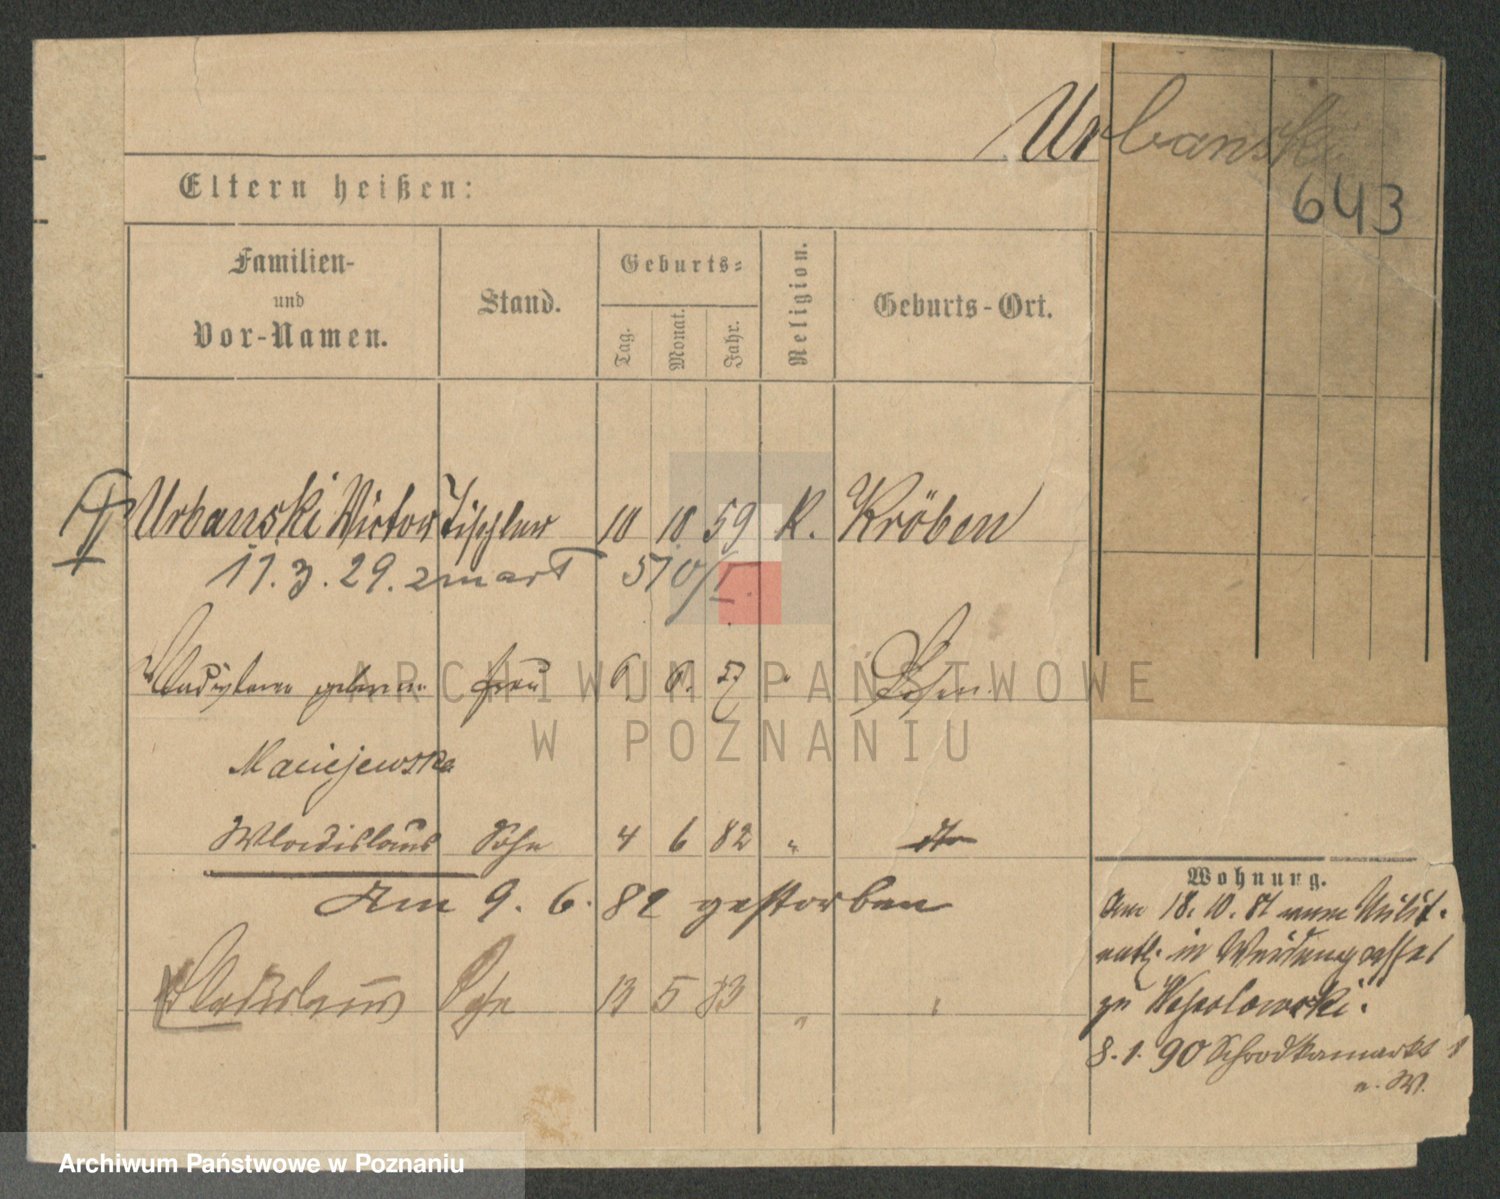 Urbanski
643
Eltern heißen:
Familien-
und
Vor-Namen.
Stand.
Geburts-
Tag.
Monat.
Jahr.
Religion.
Geburts-Ort.
Urbanski Victor Tischler 10 10 59 K. Kröben
11.3.29. zmarł 510/I.
geborene Frau 6. 6. 57 "
Maciejewska
Wladislaus Sohn 4 6 82 " dto
Am 9. 6. 82 gestorben
Wladislaus Sohn 13 5 83 " "
Wohnung.
Am 18. 10. 81
in
zu
8. 1. 90 Schrodkamarkt 8
n. W.
ARCHIWUM PAŃSTWOWE
W POZNANIU
Archiwum Państwowe w Poznaniu